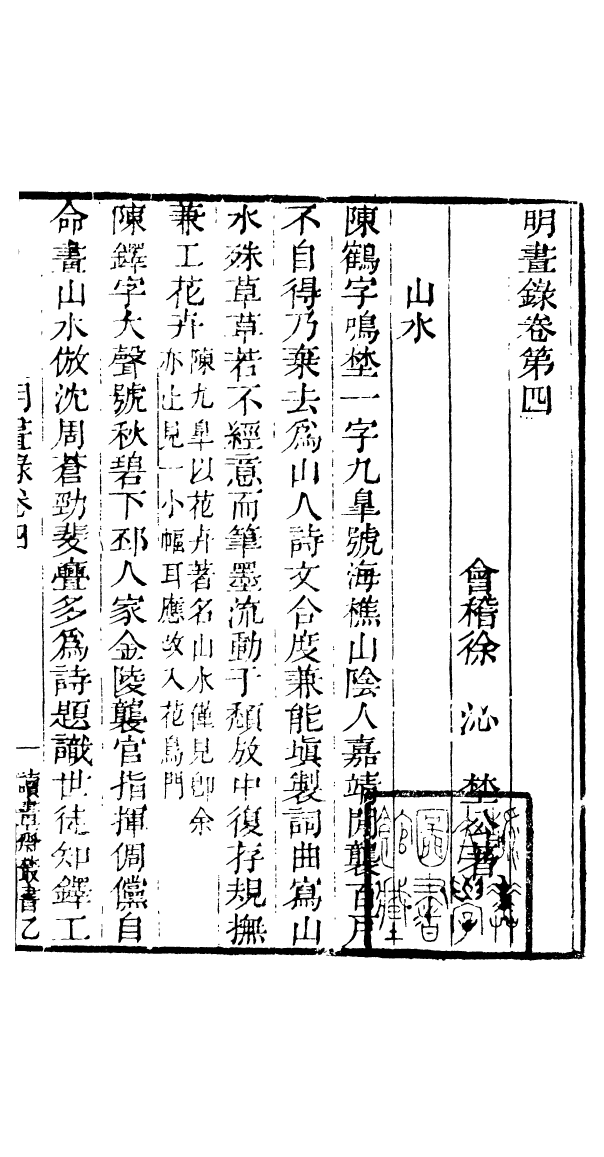 明畫錄卷第四
會稽徐　沁　埜公著
山水
陳鶴字鳴埜一字九臯號海樵山陰人嘉靖間襲百戶
不自得乃棄去爲山人詩文合度兼能塡製詞曲寫山
水殊草草若不經意而筆墨流動于頹放中復存規撫
兼工花卉
陳九臯以花卉著名山水僅見卽余
亦止見一小幅耳應改入花鳥門
陳鐸字大聲號秋碧下邳人家金陵襲官指揮倜儻自
命畫山水倣沈周蒼勁斐亹多爲詩題識世徒知鐸工
明畫錄卷四
一
讀畫齋叢書乙